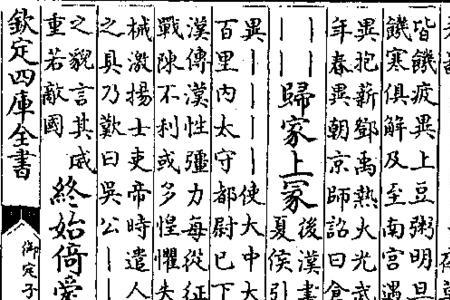 皆饑疲異上豆粥明旦
饑寒俱解及至南宫遇
異抱薪鄧禹熱火光武
年春異朝京師詔曰倉
歸家上冢
後漢書
夏侯引
異丨丨丨丨使大中大
百里内太守都尉已下
漢傳漢性彊力每從征
戰陳不利或多惶懼失
械激揚士吏帝時遣人
之具乃歎曰吳公丨
之貌言其威
重若敵國
終始倚愛
欽定四庫全書
御定子